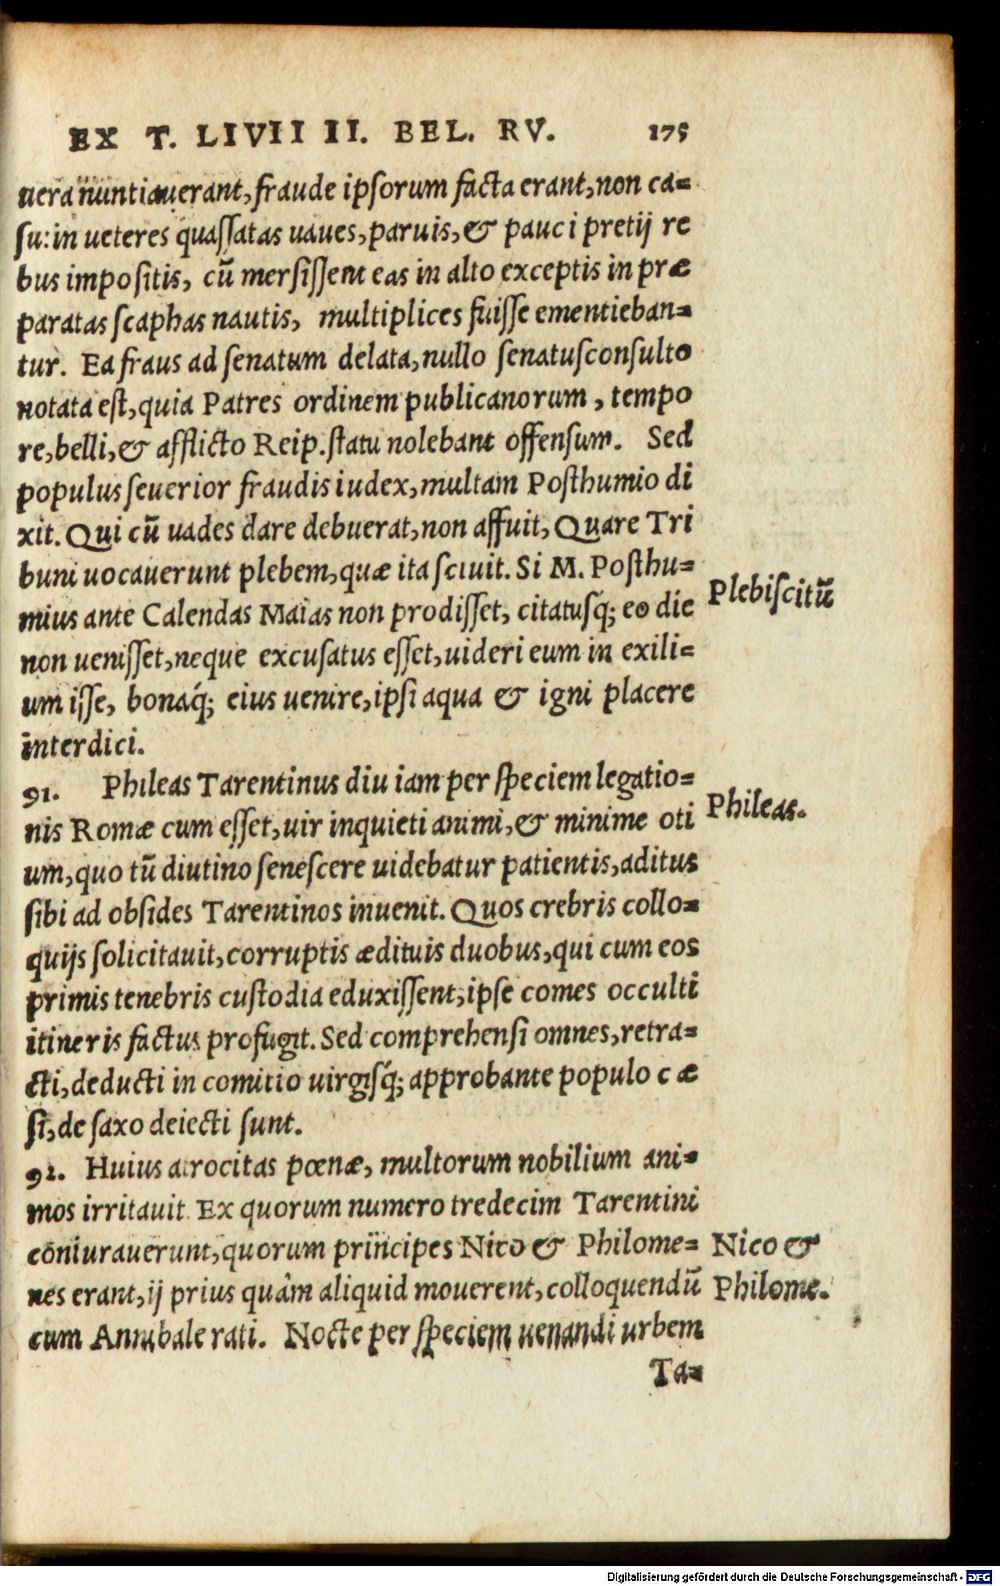 EX T. LIVII II. BEL. RV. 175
uera nuntiauerant, fraude ipsorum facta erant, non ca=
su: in ueteres quassatas uaues, paruis, & pauci pretij re
bus impositis, cū mersissent eas in alto exceptis in præ
paratas scaphas nautis, multiplices fuisse ementieban=
tur. Ea fraus ad senatum delata, nullo senatusconsulto
notata est, quia Patres ordinem publicanorum, tempo
re, belli, & afflicto Reip. statu nolebant offensum. Sed
populus seuerior fraudis iudex, multam Posthumio di
xit. Qui cū uades dare debuerat, non affuit, Quare Tri
buni uocauerunt plebem, quæ ita sciuit. Si M. Posthu=
mius ante Calendas Maias non prodisset, citatusq́; eo die
Plebiscitū
non uenisset, neque excusatus esset, uideri eum in exili=
um isse, bonaq́; eius uenire, ipsi aqua & igni placere
interdici.
91. Phileas Tarentinus diu iam per speciem legatio=
Phileas.
nis Romæ cum esset, uir inquieti animi, & minime oti
um, quo tū diutino senescere uidebatur patientis, aditus
sibi ad obsides Tarentinos inuenit. Quos crebris collo=
quijs solicitauit, corruptis ædituis duobus, qui cum eos
primis tenebris custodia eduxissent, ipse comes occulti
itineris factus profugit. Sed comprehensi omnes, retra=
cti, deducti in comitio uirgisq́; approbante populo cæ
si, de saxo deiecti sunt.
92. Huius atrocitas pœnæ, multorum nobilium ani=
mos irritauit Ex quorum numero tredecim Tarentini
coniurauerunt, quorum principes Nico & Philome=
Nico &
nes erant, ij prius quàm aliquid mouerent, colloquendū
Philome.
cum Annibale rati. Nocte per speciem uenandi urbem
Ta=
Digitalisierung gefördert durch die Deutsche Forschungsgemeinschaft - DFG